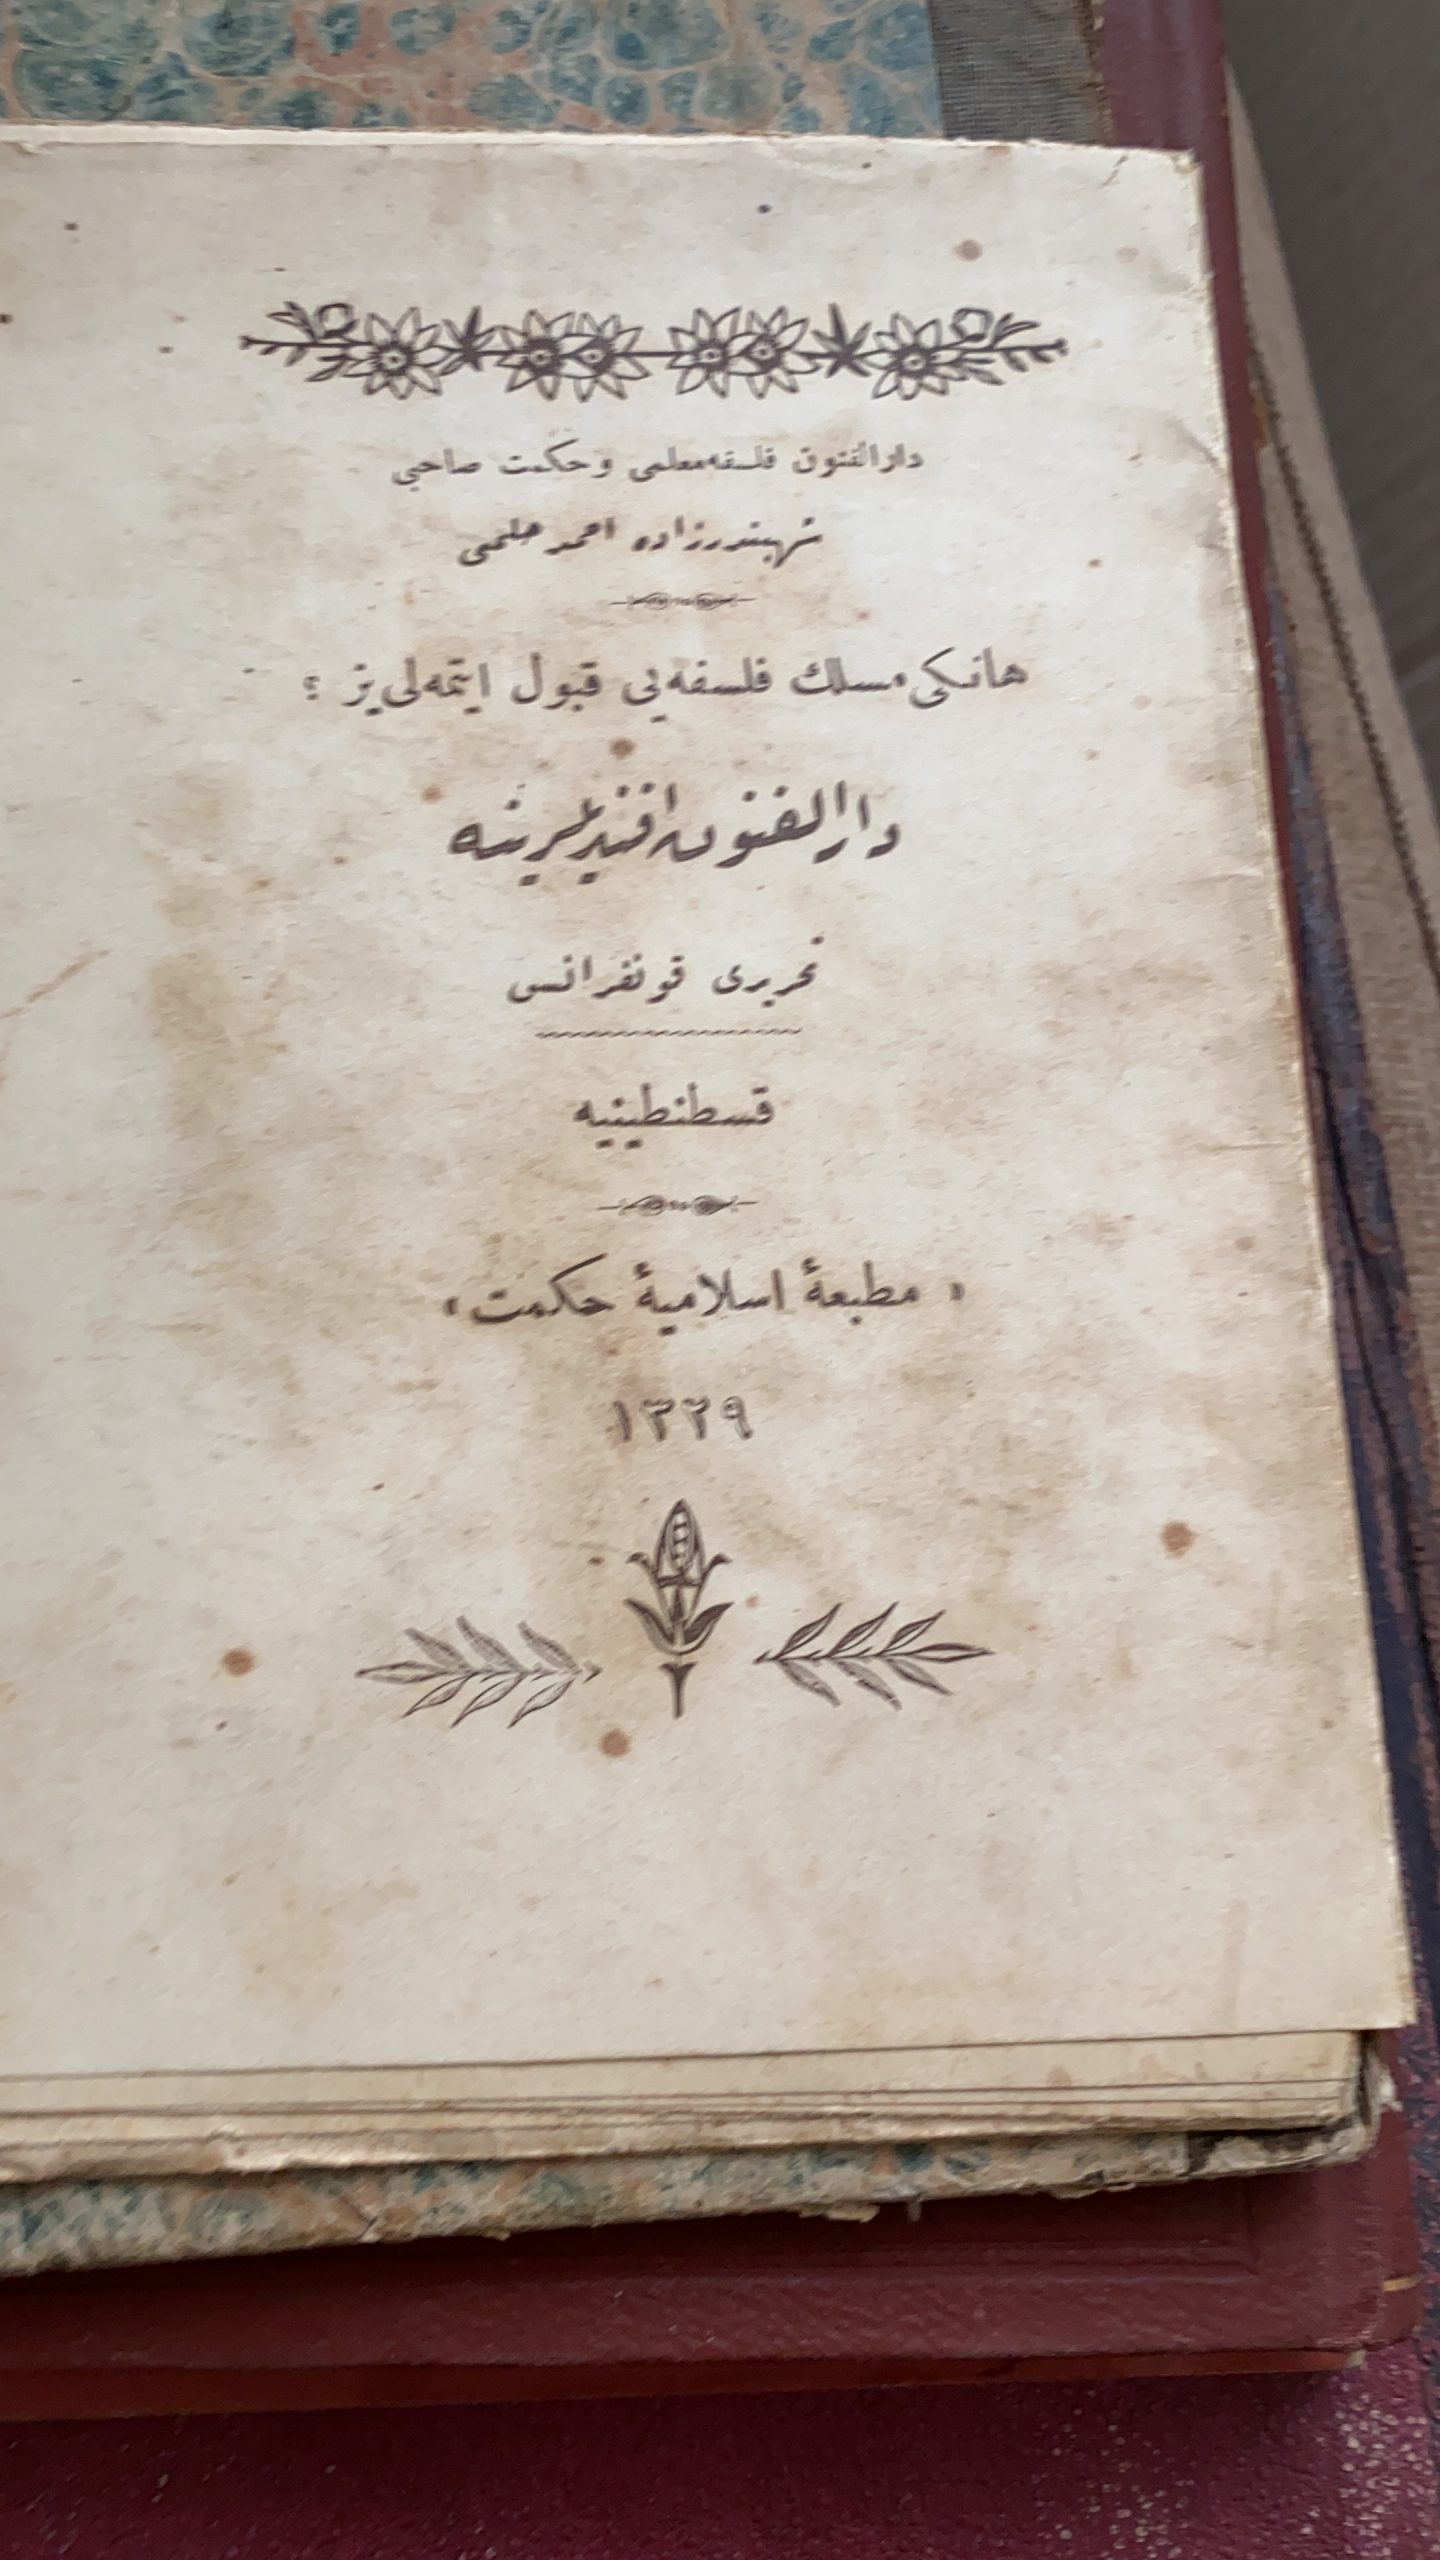 دارالفنون فلسفه معلمی و حكمت صاحبی
شهبندرزاده احمد حلمی
هانكی مسلك فلسفه‌یی قبول ایتمه‌لی‌یز ؟
دارالفنون افندیلرینه
تحریری قونفرانس
قسطنطینیه
« مطبعهٔ اسلامیهٔ حكمت »
١٣٢٩